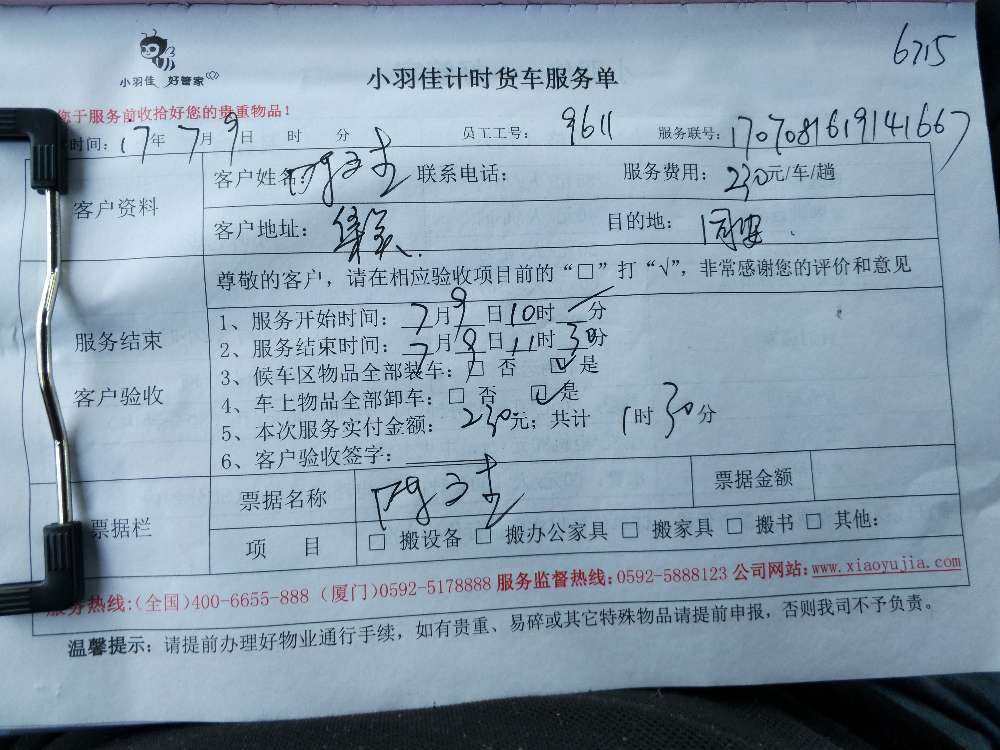 6715
小羽佳 好管家
小羽佳计时货车服务单
您于服务前收拾好您的贵重物品！
时间：17年7月9日 时 分 员工工号：9611 服务联号：1707081619141667
客户资料
客户姓名： 联系电话： 服务费用：230元/车/趟
客户地址：集美 目的地：同安
服务结束
客户验收
尊敬的客户，请在相应验收项目前的“□”打“√”，非常感谢您的评价和意见
1、服务开始时间：7月9日10时 分
2、服务结束时间：7月9日11时30分
3、候车区物品全部装车：□ 否 ☑ 是
4、车上物品全部卸车：□ 否 ☑ 是
5、本次服务实付金额：230元；共计 1时30分
6、客户验收签字：
票据栏
票据名称 票据金额
项 目 □ 搬设备 □ 搬办公家具 □ 搬家具 □ 搬书 □ 其他：
服务热线：(全国)400-6655-888 (厦门)0592-5178888 服务监督热线：0592-5888123 公司网站：www.xiaoyujia.com
温馨提示：请提前办理好物业通行手续，如有贵重、易碎或其它特殊物品请提前申报，否则我司不予负责。